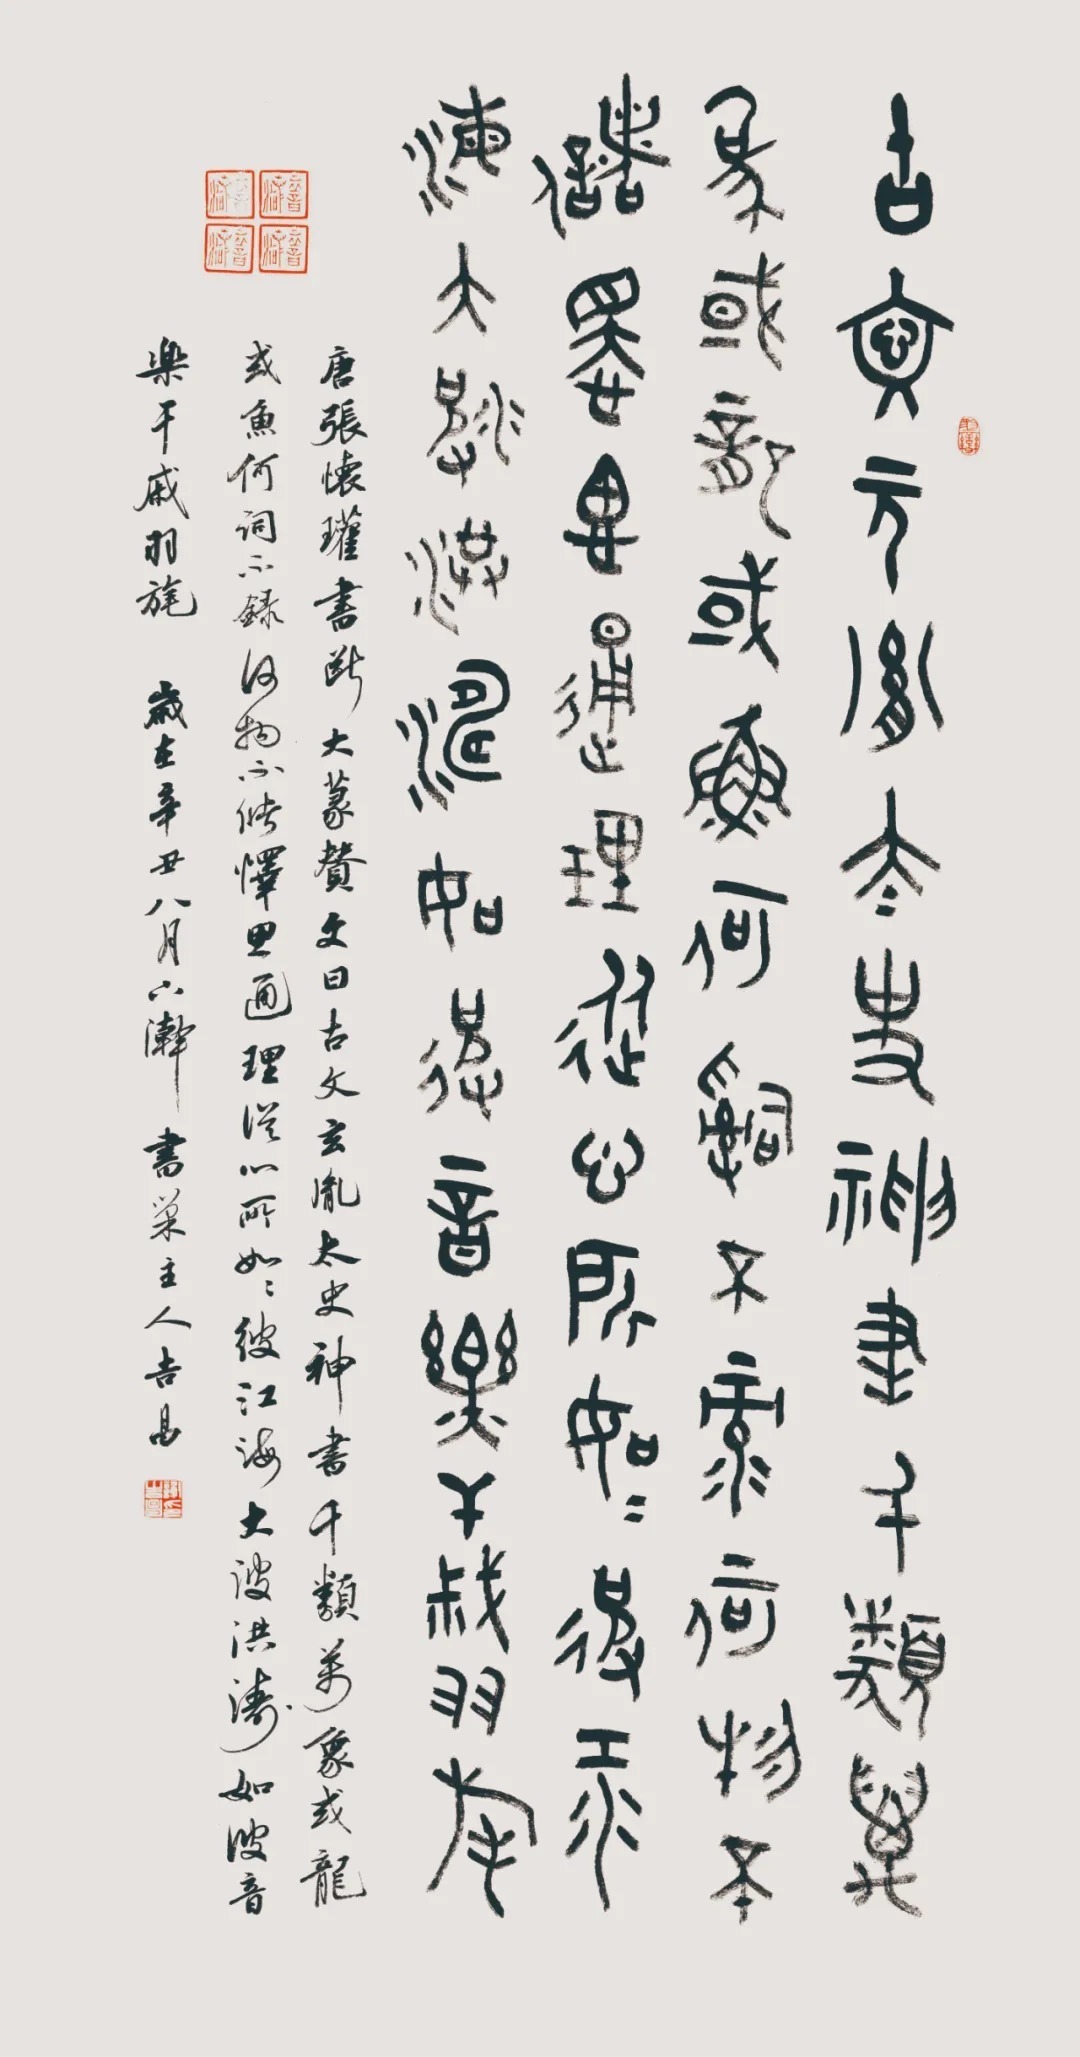 古文玄胤太史神書千類萬
象或龍或魚何詞不录何物不
儲懌思通理從心所如〻彼江
海大波洪濤如彼音樂干戚羽旄
唐張懷瓘書斷大篆贊文曰古文玄胤太史神書千類萬象或龍
或魚何詞不録何物不儲懌思通理從心所如〻彼江海大波洪濤如彼音
樂干戚羽旄 歲在辛丑八月下澣 書巢主人吉昌